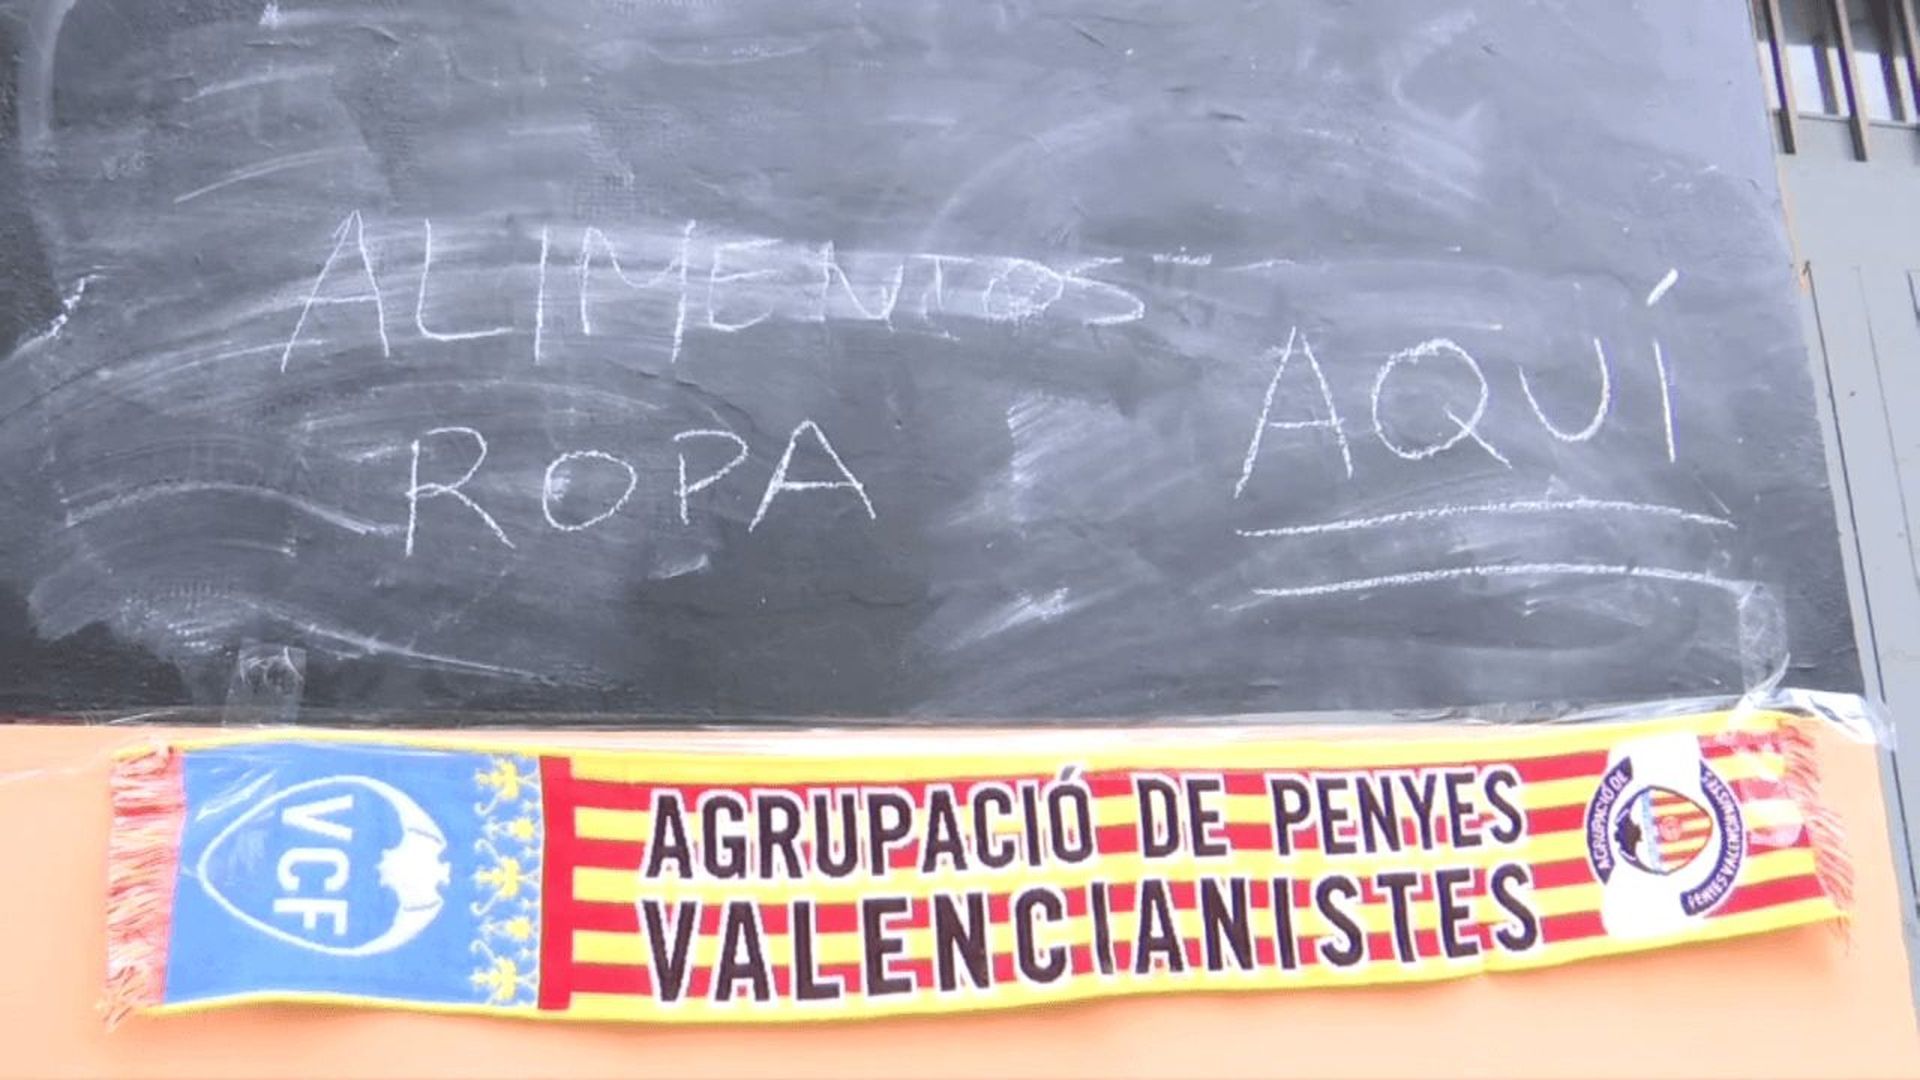 ALIMENTOS
AQUÍ
ROPA
VCF
AGRUPACIÓ DE PENYES
VALENCIANISTES
AGRUPACIÓ DE
PENYES VALENCIANISTES